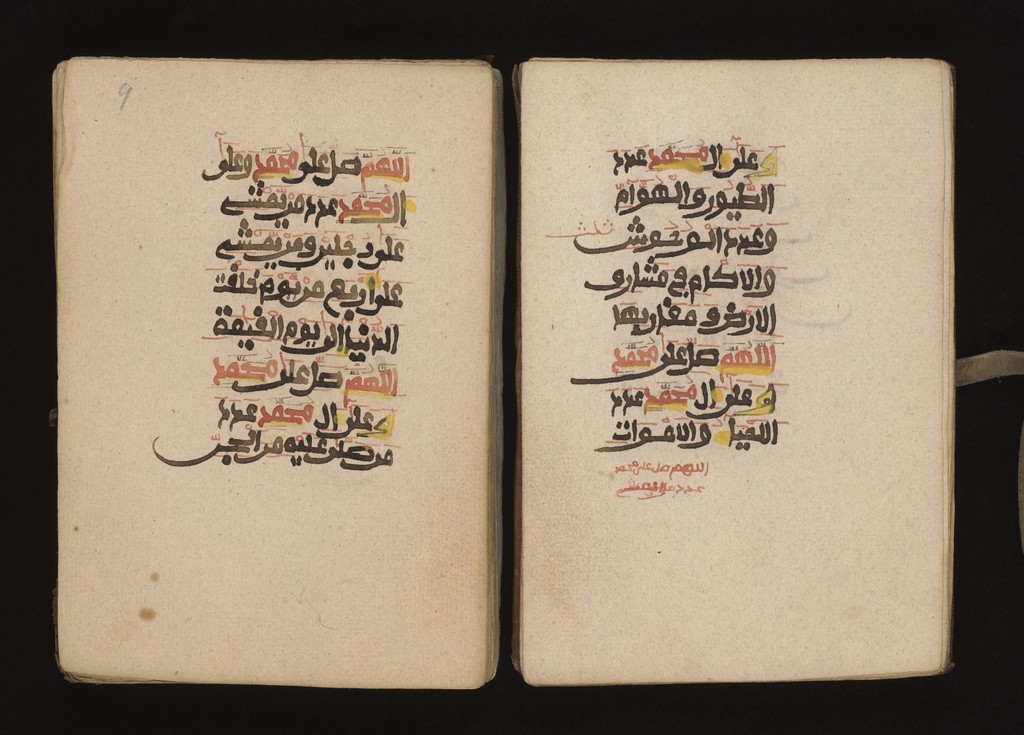 وعلى ال محمد عدد
الطيور والهوام
وعدد الوحوش ثلث
والاكام في مشارق
الارض و مغاربها
اللهم صل على محمد
وعلى ال محمد عدد
الاحيا والاموات
اللهم صل على محمد
عدد
9
اللهم صل على محمد وعلى
ال محمد عدد من يمشي
على رجلين ومن يمشي
على اربع من يوم خلقت
الدنيا الى يوم القيمة
اللهم صل على محمد
وعلى ال محمد عدد
من صلى عليه من الجن